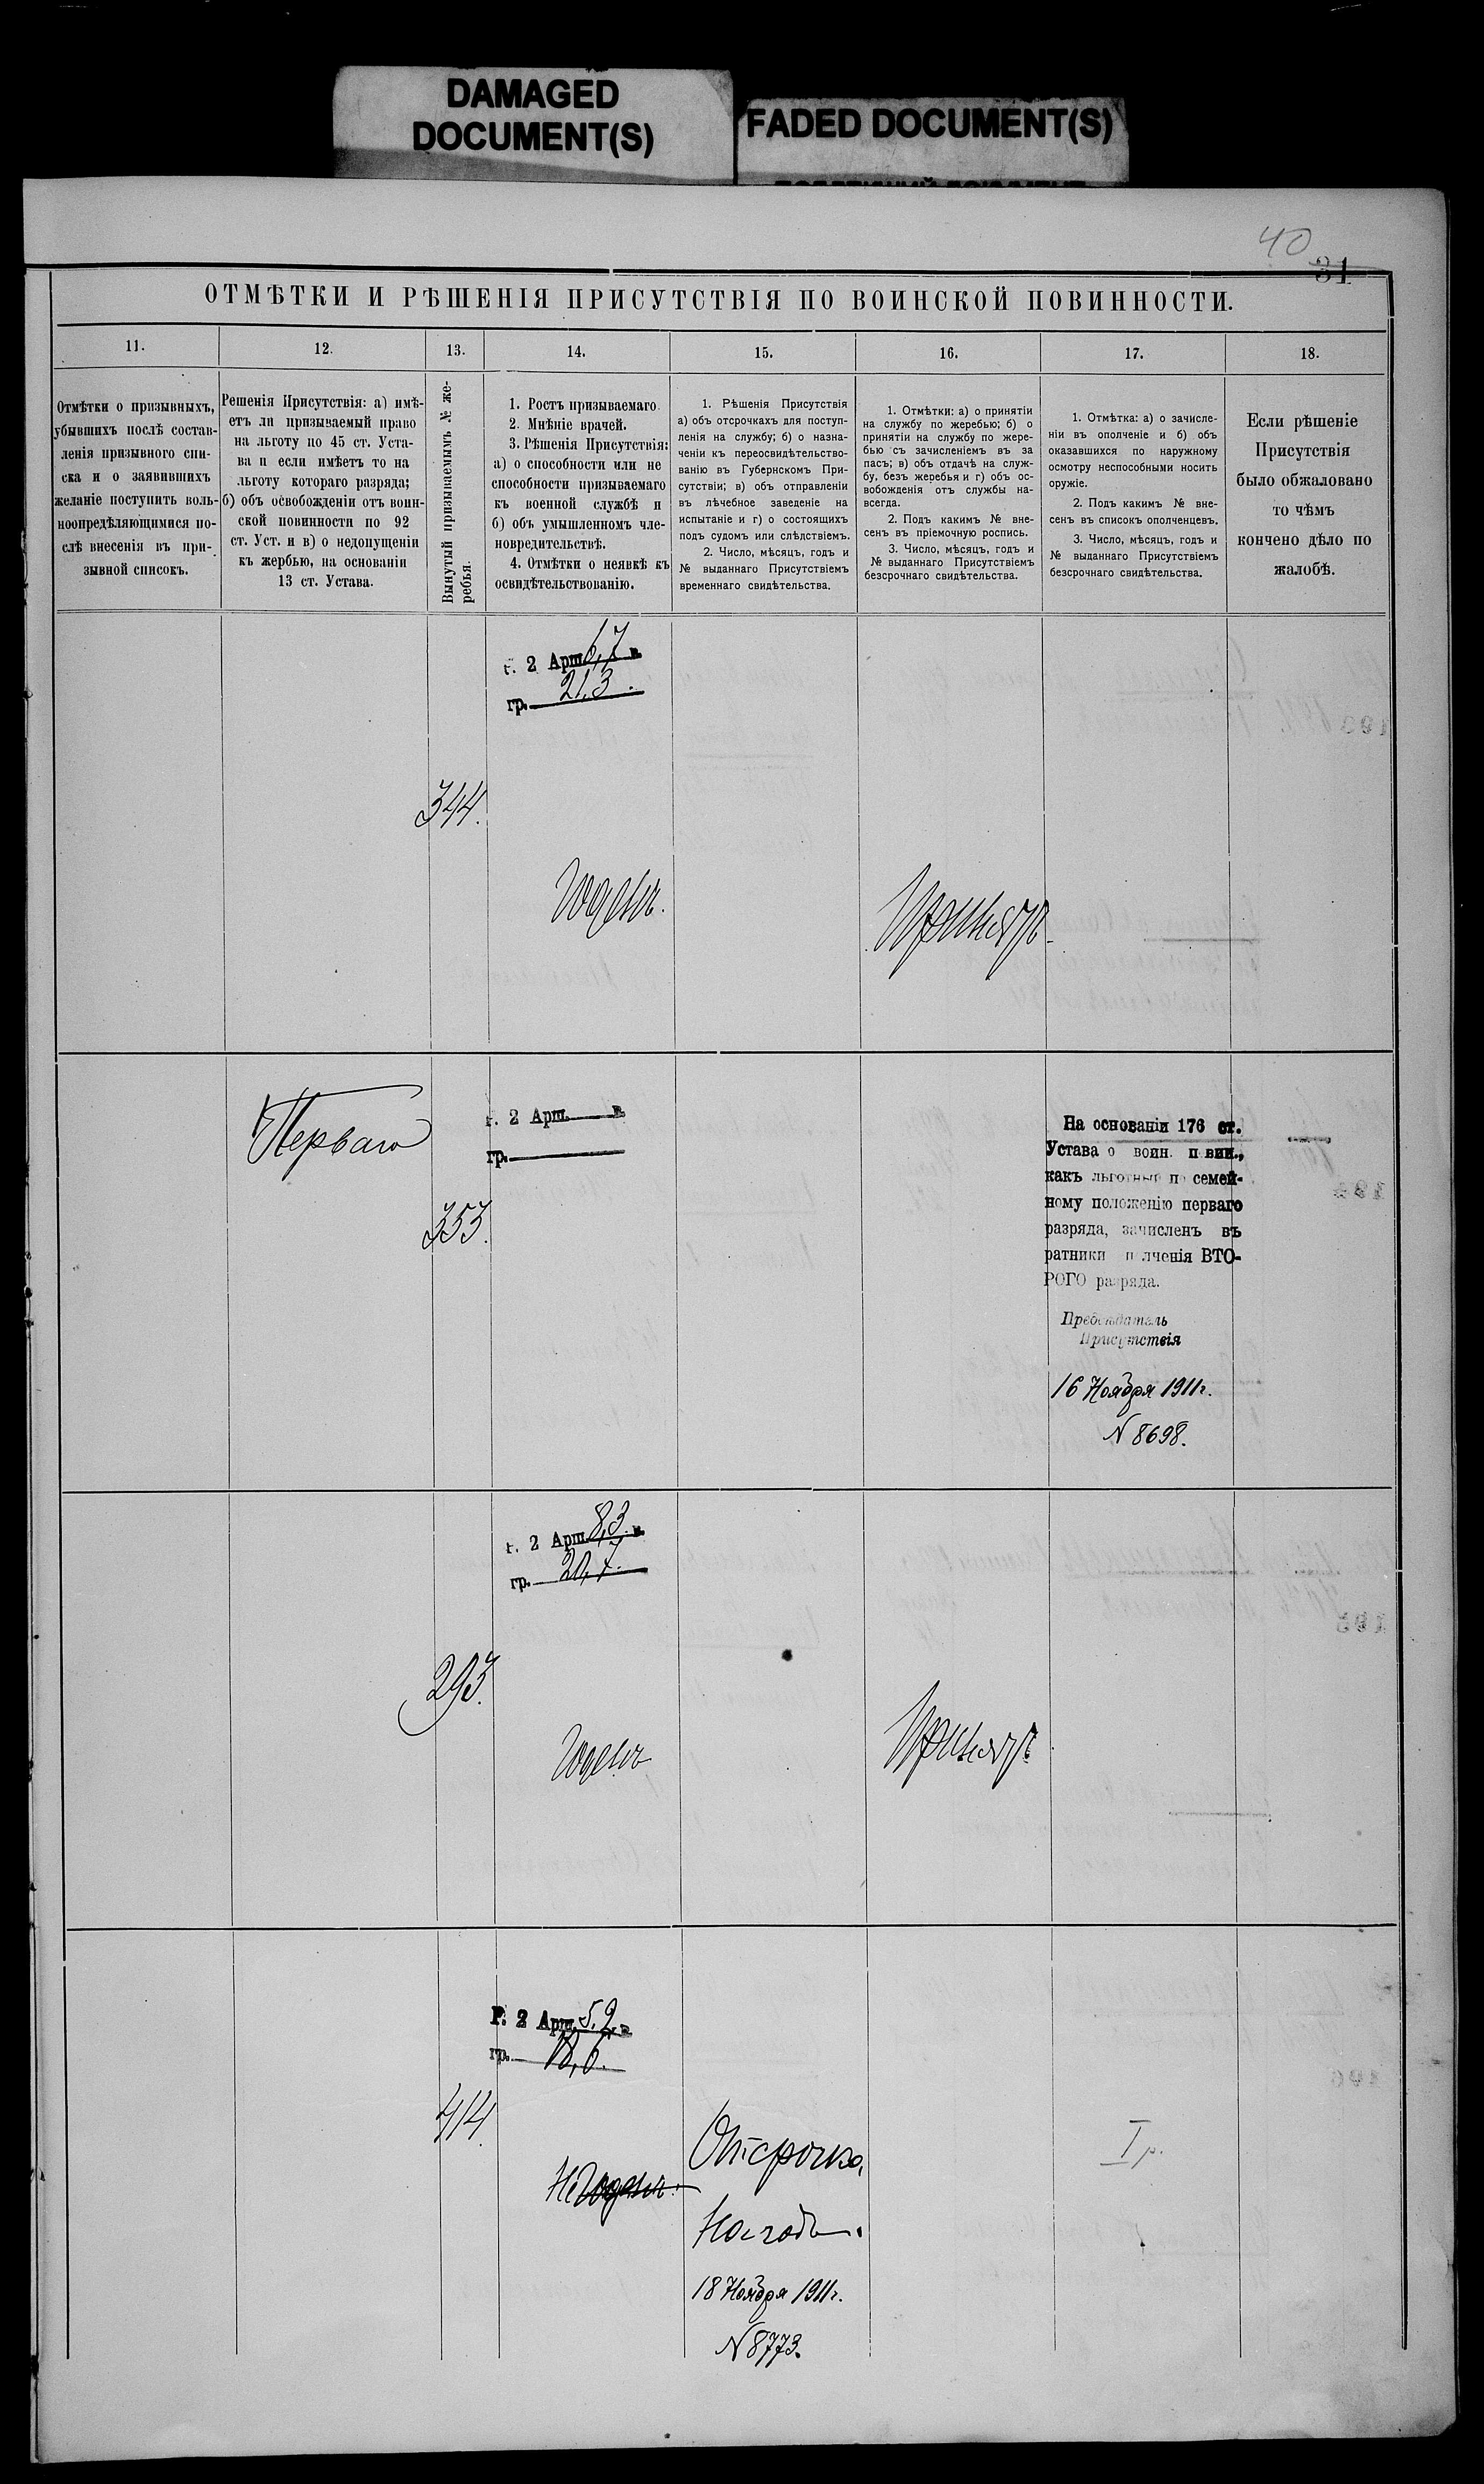 DAMAGED
DOCUMENT(S)
FADED DOCUMENT(S)
40
31
ОТМѢТКИ И РѢШЕНІЯ ПРИСУТСТВІЯ ПО ВОИНСКОЙ ПОВИННОСТИ.
11.
12.
13.
14.
15.
16.
17.
18.
Отмѣтки о призывныхъ,
убывшихъ послѣ состав-
ленія призывного спи-
ска и о заявившихъ
желаніе поступить воль-
ноопредѣляющимися по-
слѣ внесенія въ при-
зывной списокъ.
Решенія Присутствія: а) имѣ-
етъ ли призываемый право
на льготу по 45 ст. Уста-
ва и если имѣетъ то на
льготу котораго разряда;
б) объ освобожденіи отъ воин-
ской повинности по 92
ст. Уст. и в) о недопущеніи
къ жербью, на основаніи
13 ст. Устава.
Вынутый призываемымъ № же-
ребья.
1. Ростъ призываемаго.
2. Мнѣніе врачей.
3. Рѣшенія Присутствія:
а) о способности или не
способности призываемаго
къ военной службѣ и
б) объ умышленномъ чле-
новредительствѣ.
4. Отмѣтки о неявкѣ къ
освидѣтельствованію.
1. Рѣшенія Присутствія
а) объ отсрочкахъ для поступ-
ленія на службу; б) о назна-
ченіи къ переосвидѣтельство-
ванію въ Губернскомъ При-
сутствіи; в) объ отправленіи
въ лѣчебное заведеніе на
испытаніе и г) о состоящихъ
подъ судомъ или слѣдствіемъ.
2. Число, мѣсяцъ, годъ и
№ выданнаго Присутствіемъ
временнаго свидѣтельства.
1. Отмѣтки: а) о принятіи
на службу по жеребью; б) о
принятіи на службу по жере-
бью съ зачисленіемъ въ за
пасъ; в) объ отдачѣ на служ-
бу, безъ жеребья и г) объ ос-
вобожденія отъ службы на-
всегда.
2. Подъ какимъ № вне-
сенъ въ пріемочную роспись.
3. Число, мѣсяцъ, годъ и
№ выданнаго Присутствіемъ
безсрочнаго свидѣтельства.
1. Отмѣтка: а) о зачисле-
ніи въ ополченіе и б) объ
оказавшихся по наружному
осмотру неспособными носить
оружіе.
2. Подъ какимъ № вне-
сенъ въ списокъ ополченцевъ.
3. Число, мѣсяцъ, годъ и
№ выданнаго Присутствіемъ
безсрочнаго свидѣтельства.
Если рѣшеніе
Присутствія
было обжаловано
то чѣмъ
кончено дѣло по
жалобѣ.
г. 2 Арш. 6,7 в.
гр. 21,3.
344.
Годенъ.
Принятъ.
Перваго
г. 2 Арш. в.
гр.
353.
На основаніи 176 ст.
Устава о воин. п вин.,
какъ льготный по семей-
ному положенію перваго
разряда, зачисленъ въ
ратники п лченія ВТО-
РОГО разряда.
Предсѣдатель
Присутствія
16 Ноября 1911г.
N 8698.
г. 2 Арш. 8,3 в.
гр. 20,7.
293.
Годенъ
Принятъ.
Р. 2 Арш. 5,2 в
гр. 18,6.
414.
Не годенъ.
Отсрочка,
На годъ.
18 Ноября 1911г.
N 8773.
I р.